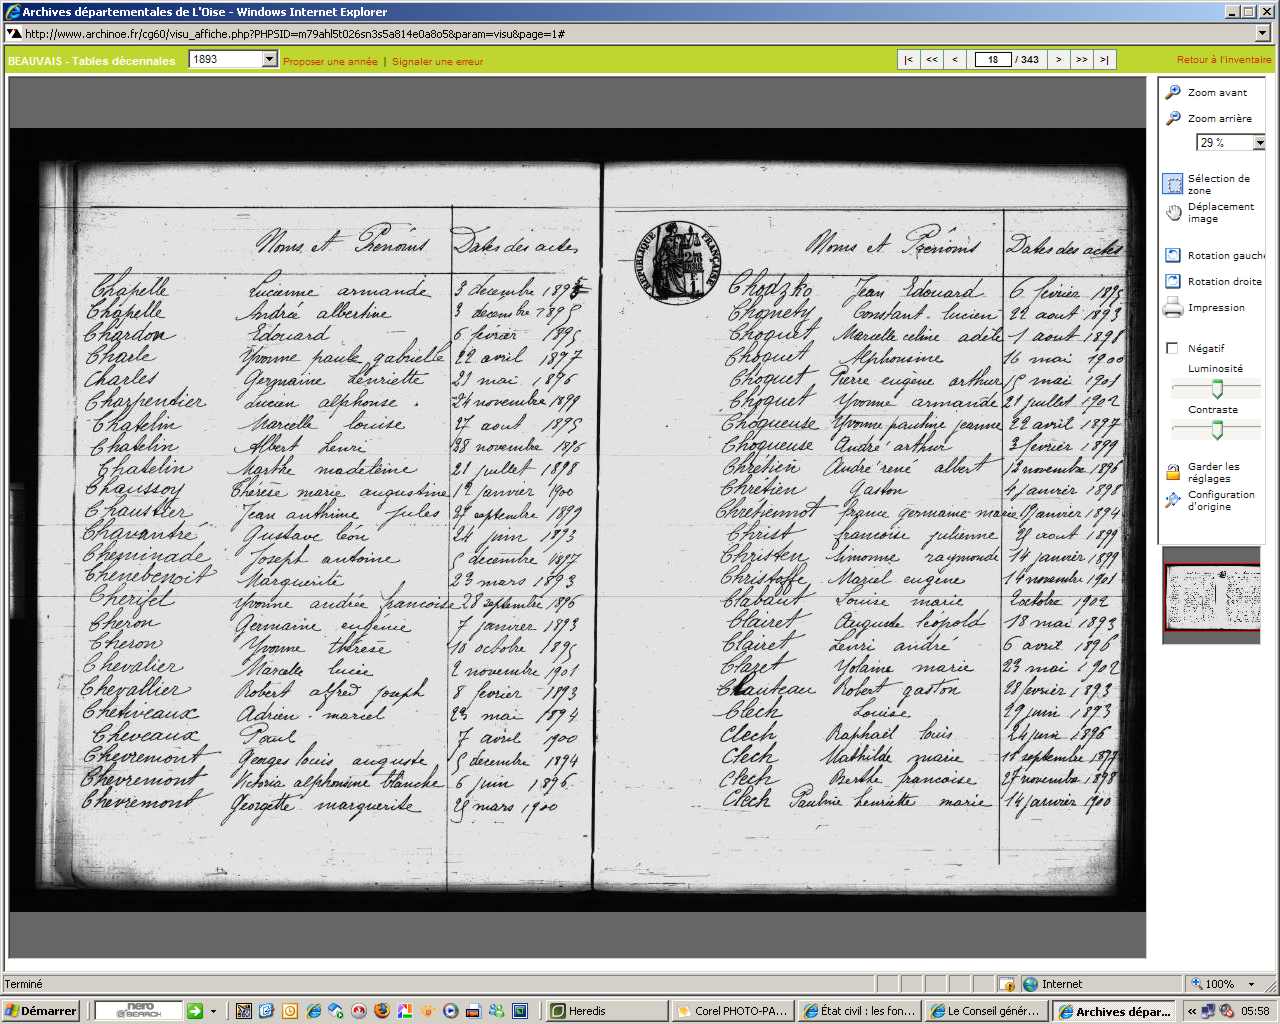 Archives départementales de L'Oise - Windows Internet Explorer
http://www.archinoe.fr/cg60/visu_affiche.php?PHPSID=m79ahl5t026sn3s5a814e0a8o5&param=visu&page=1#
BEAUVAIS - Tables décennales 1893 Proposer une année | Signaler une erreur |< << < 18 / 343 > >> >| Retour à l'inventaire
Zoom avant
Zoom arrière
29 %
Sélection de
zone
Déplacement
image
Rotation gauche
Rotation droite
Impression
Négatif
Luminosité
Contraste
Garder les
réglages
Configuration
d'origine
Noms et Prénoms Dates des actes
Chapelle Lucienne armande 3 décembre
Chapelle André albertine 3 décembre 1895
Chardon Edouard 6 février 1895
Charle Yvonne paule gabrielle 22 avril 1897
Charles Germaine henriette 23 mai 1896
Charpentier Lucien alphonse 24 novembre 1899
Chatelin Marcelle louise 27 aout 1895
Chatelin Albert henri 28 novembre 1896
Chatelin Marthe madeleine 21 juillet 1898
Chaussoy Thérèse marie augustine 12 janvier 1900
Chaustier Jean anthime jules 27 septembre 1899
Chavandré Gustave léon 24 juin 1893
Cheminade Joseph antoine 5 décembre 1897
Chenebenoit Marguerite 23 mars 1893
Cherifel Yvonne andrée francoise 28 septembre 1896
Cheron Germaine eugenie 7 janvier 1893
Cheron Yvonne thérèse 10 octobre 1895
Chevalier Marcelle lucie 2 novembre 1901
Chevallier Robert alfred joseph 8 fevrier 1893
Chetiveaux Adrien marcel 23 mai 1894
Cheveaux Paul 7 avril 1900
Chevremont Georges louis auguste 5 décembre 1894
Chevremont Victoria alphonsine blanche 6 juin 1896
Chevremont Georgette marguerite 25 mars 1900
REPUBLIQUE FRANÇAISE
Noms et Prénoms Dates des actes
Chodzko Jean Edouard 6 février 1895
Constant lucien 22 aout 1893
Choquet Marcelle celine adèle 1 aout 1898
Choquet Alphonsine 16 mai 1900
Choquet Pierre eugène arthur 15 mai 1901
Choquet Yvonne armande 21 juillet 1902
Choqueuse Yvonne pauline jeanne 22 avril 1897
Choqueuse André arthur 3 fevrier 1899
Chrétien André rené albert 12 novembre 1896
Chrétien Gaston 4 janvier 1898
Chretiennot france germaine marie janvier 1894
Christ francoise julienne 25 aout 1899
Christen Simonne raymonde 14 janvier 1899
Christoffe Marcel eugène 14 novembre 1901
Clabaut Louise marie 2 octobre 1902
Clairet Auguste léopold 18 mai 1893
Clairet henri andré 6 avril 1896
Clazet Yolaine marie 23 mai 1902
Clauteau Robert gaston 28 fevrier 1893
Clech Louise 29 juin 1893
Clech Raphaël louis 24 juin 1896
Clech Mathilde marie 11 septembre 1897
Clech Berthe francoise 27 novembre 1898
Clech Pauline henriette marie 14 janvier 1900
Terminé Internet 100%
Démarrer nero SEARCH Heredis Corel PHOTO-PA... État civil : les fon... Le Conseil génér... Archives dépar... 05:58